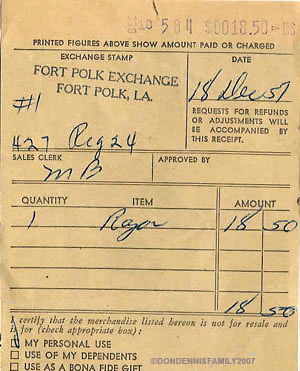 584 $0018.50
PRINTED FIGURES ABOVE SHOW AMOUNT PAID OR CHARGED
EXCHANGE STAMP
DATE
FORT POLK EXCHANGE
FORT POLK, LA.
#1
18 Dec 57
REQUESTS FOR REFUNDS
OR ADJUSTMENTS WILL
BE ACCOMPANIED BY
THIS RECEIPT.
427 Reg 24
SALES CLERK
APPROVED BY
MB
QUANTITY ITEM AMOUNT
1 Razor 18 50
18 50
I certify that the merchandise listed hereon is not for resale and
is for (check appropriate box):
MY PERSONAL USE
USE OF MY DEPENDENTS
USE AS A BONA FIDE GIFT
©DONDENNISFAMILY2007